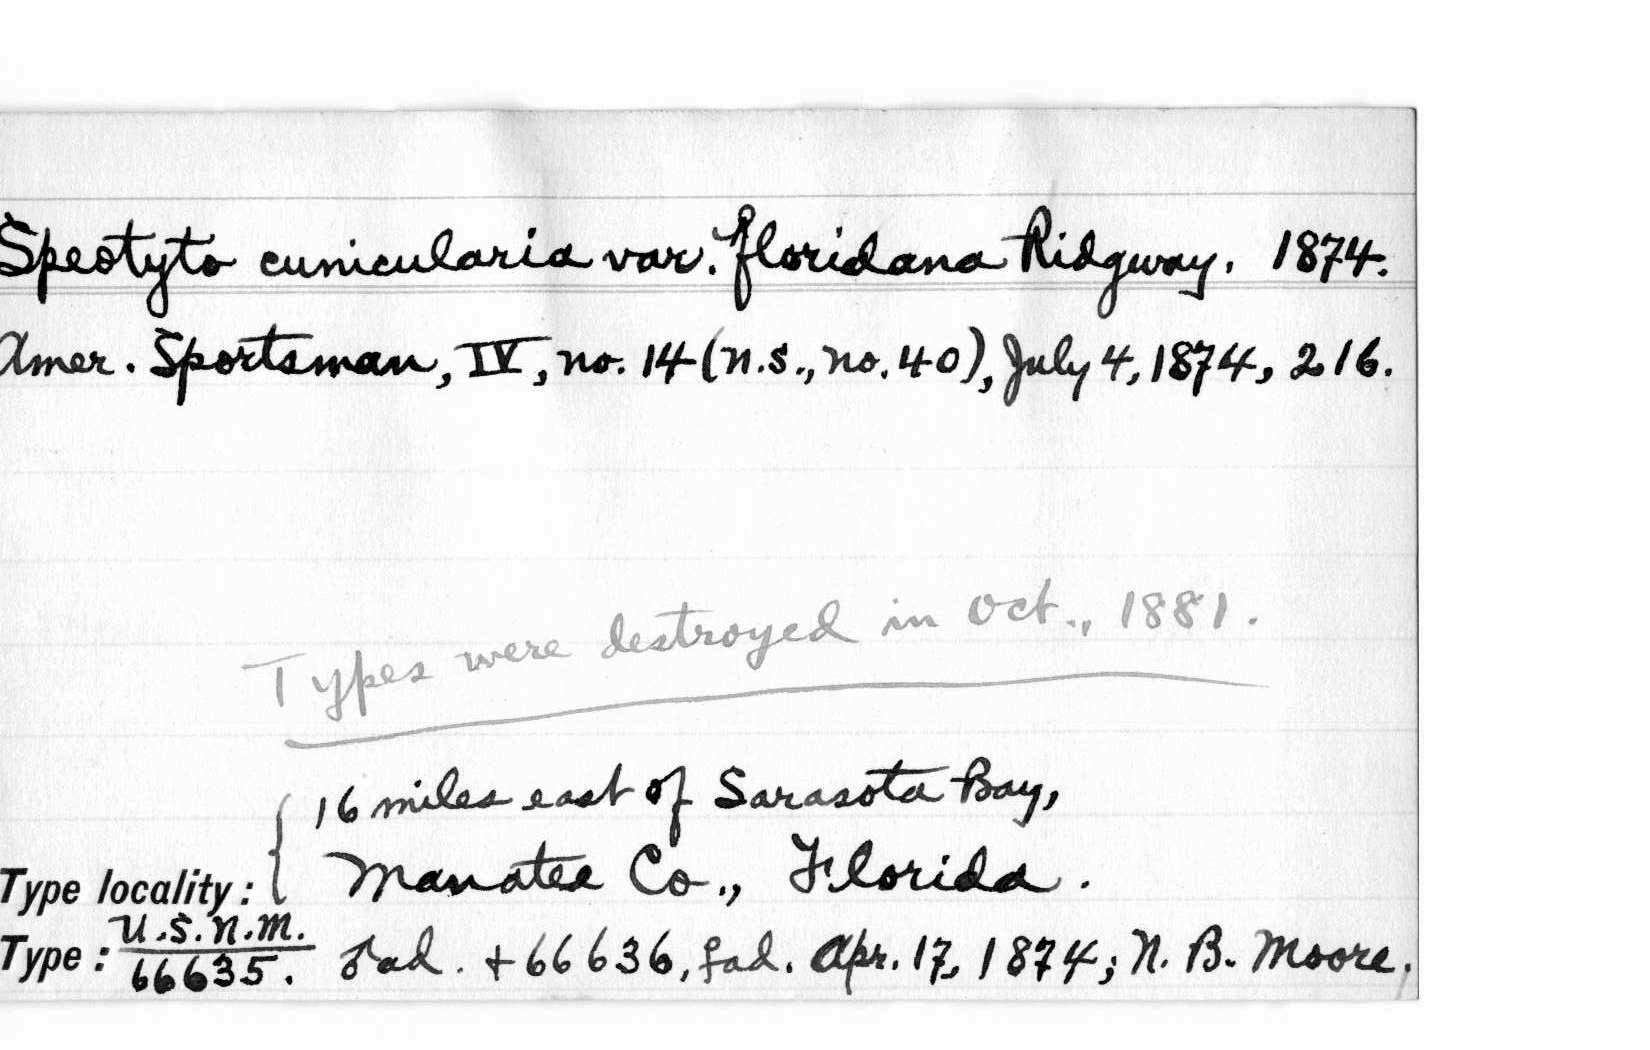 Speotyto cunicularia var. floridana Ridgway. 1874.
Amer. Sportsman, IV, no. 14 (n.s., no. 40), July 4, 1874, 216.
Types were destroyed in Oct., 1881.
16 miles east of Sarasota Bay,
Type locality: { Manatee Co., Florida.
Type: U.S.N.M. 66635. ♂ad. + 66636, ♀ad. Apr. 17, 1874; N. B. Moore.